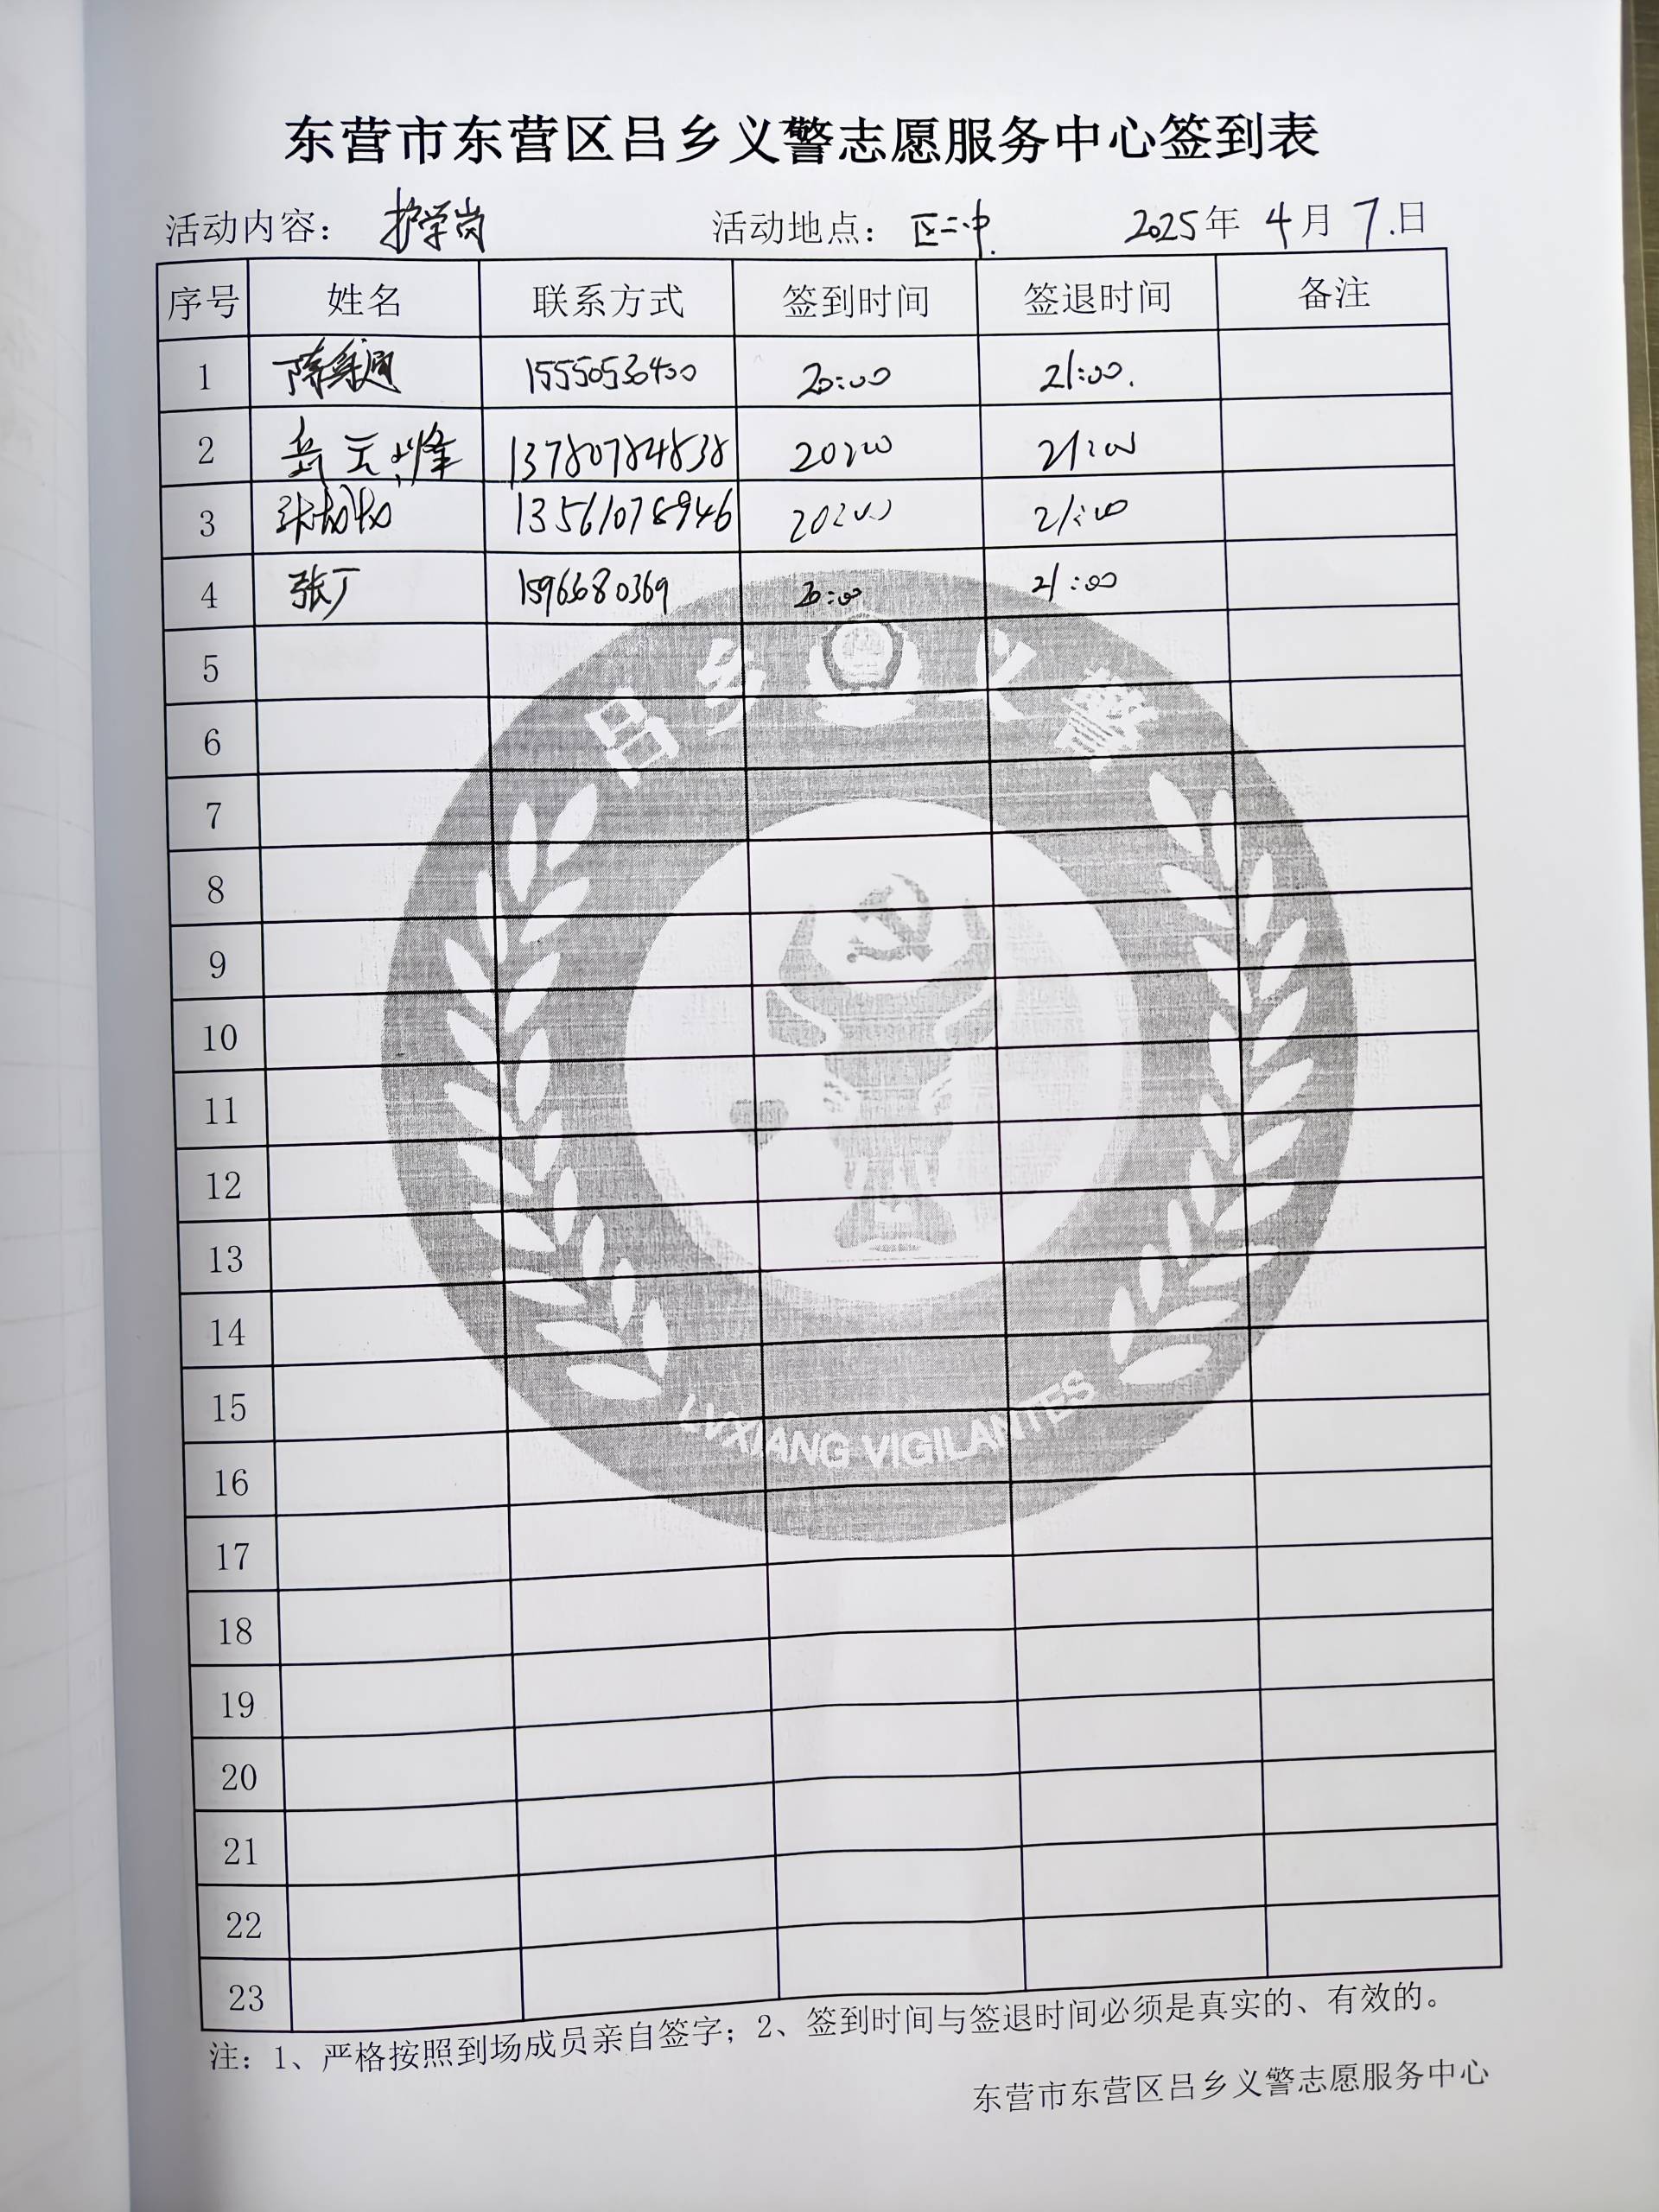 东营市东营区吕乡义警志愿服务中心签到表
活动内容： 护学岗 活动地点： 区二中. 2025年 4月 7.日
序号 姓名 联系方式 签到时间 签退时间 备注
1 陈 15550530400 20:00 21:00.
2 岳云峰 13780784838 20:00 21:00
3 张 13561078946 20:00 21:00
4 张丁 20:00 21:00
5
6
7
8
9
10
11
12
13
14
15
16
17
18
19
20
21
22
23
吕乡义警
LVXIANG VIGILANTES
注：1、严格按照到场成员亲自签字；2、签到时间与签退时间必须是真实的、有效的。
东营市东营区吕乡义警志愿服务中心